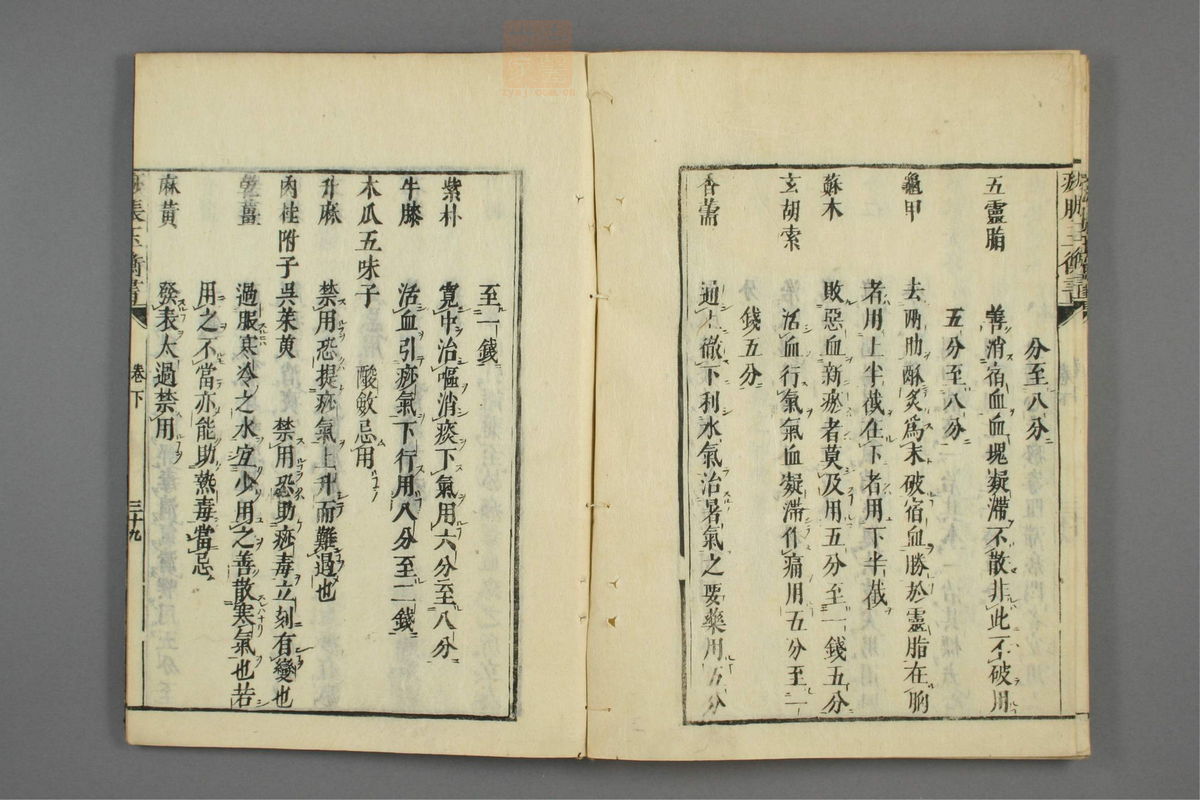 分至八分
五靈脂 善消宿血血塊凝滯不散非此不破用
五分至八分
龜甲 去兩肋酥炙爲末破宿血勝於靈脂在胸
者用上半截在下者用下半截
蘇木 敗惡血新瘀者莫及用五分至一錢五分
玄胡索 活血行氣氣血凝滯作痛用五分至一
錢五分
香薷 通上徹下利水氣治暑氣之要藥用五分
至一錢
紫朴 寬中治嘔消痰下氣用六分至八分
牛膝 活血引痧氣下行用八分至二錢
木瓜五味子 酸斂忌用
升麻 禁用恐提痧氣上升而難過也
肉桂附子吳茱萸 禁用恐助痧毒立刻有變也
薑 過服寒冷之水宜少用之善散寒氣也若
用之不當亦能助熱毒當忌
麻黃 發表太過禁用
卷下
三十九
zysj.com.cn